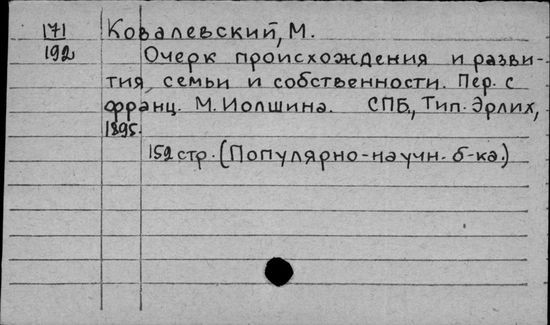 171 Ковалевский, М.
192 Очерк происхождения и разви-
тия семьи и собственности. Пер. с
франц. М. Иолшина. СПБ., Тип. Эрлих,
1895.
152 стр. (Популярно-научн. б-ка.)